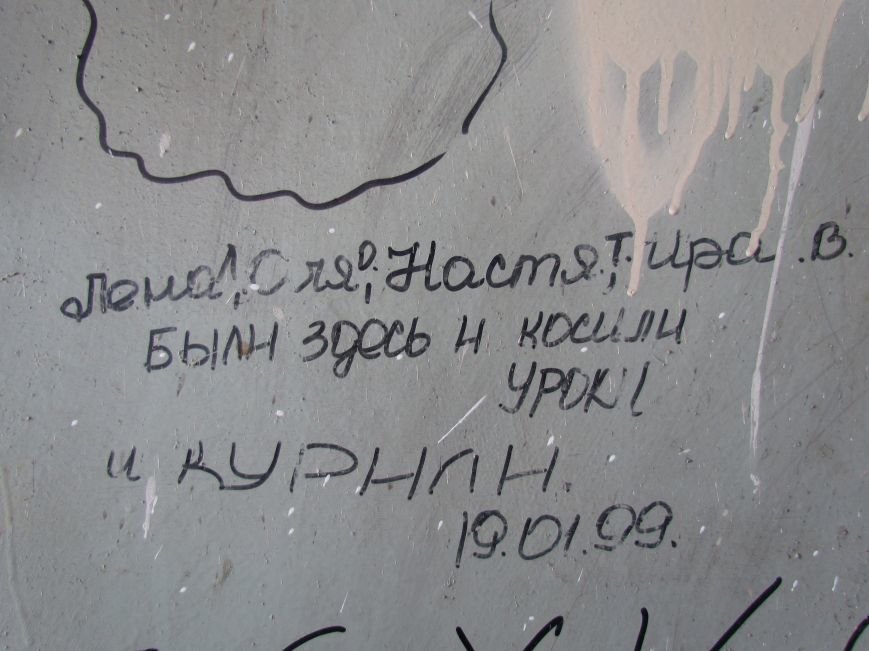 Лена Л, Оля О, Настя Т, Ира В.
БЫЛИ здесь и косили
УРОКИ
и КУРИЛИ.
19.01.99.